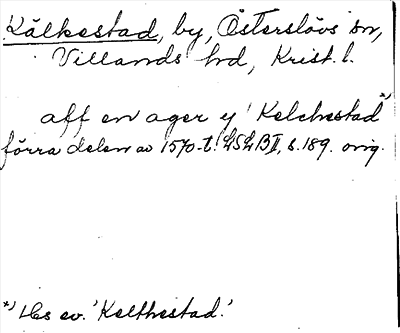 Kälkestad, by, Österslövs sn,
Villands hd, Krist. l.
aff en ager y 'Kelchestad' *)
förra delen av 1570-t. LSLBII, s. 189. orig.
*) Läs ev. 'Kelthestad.'